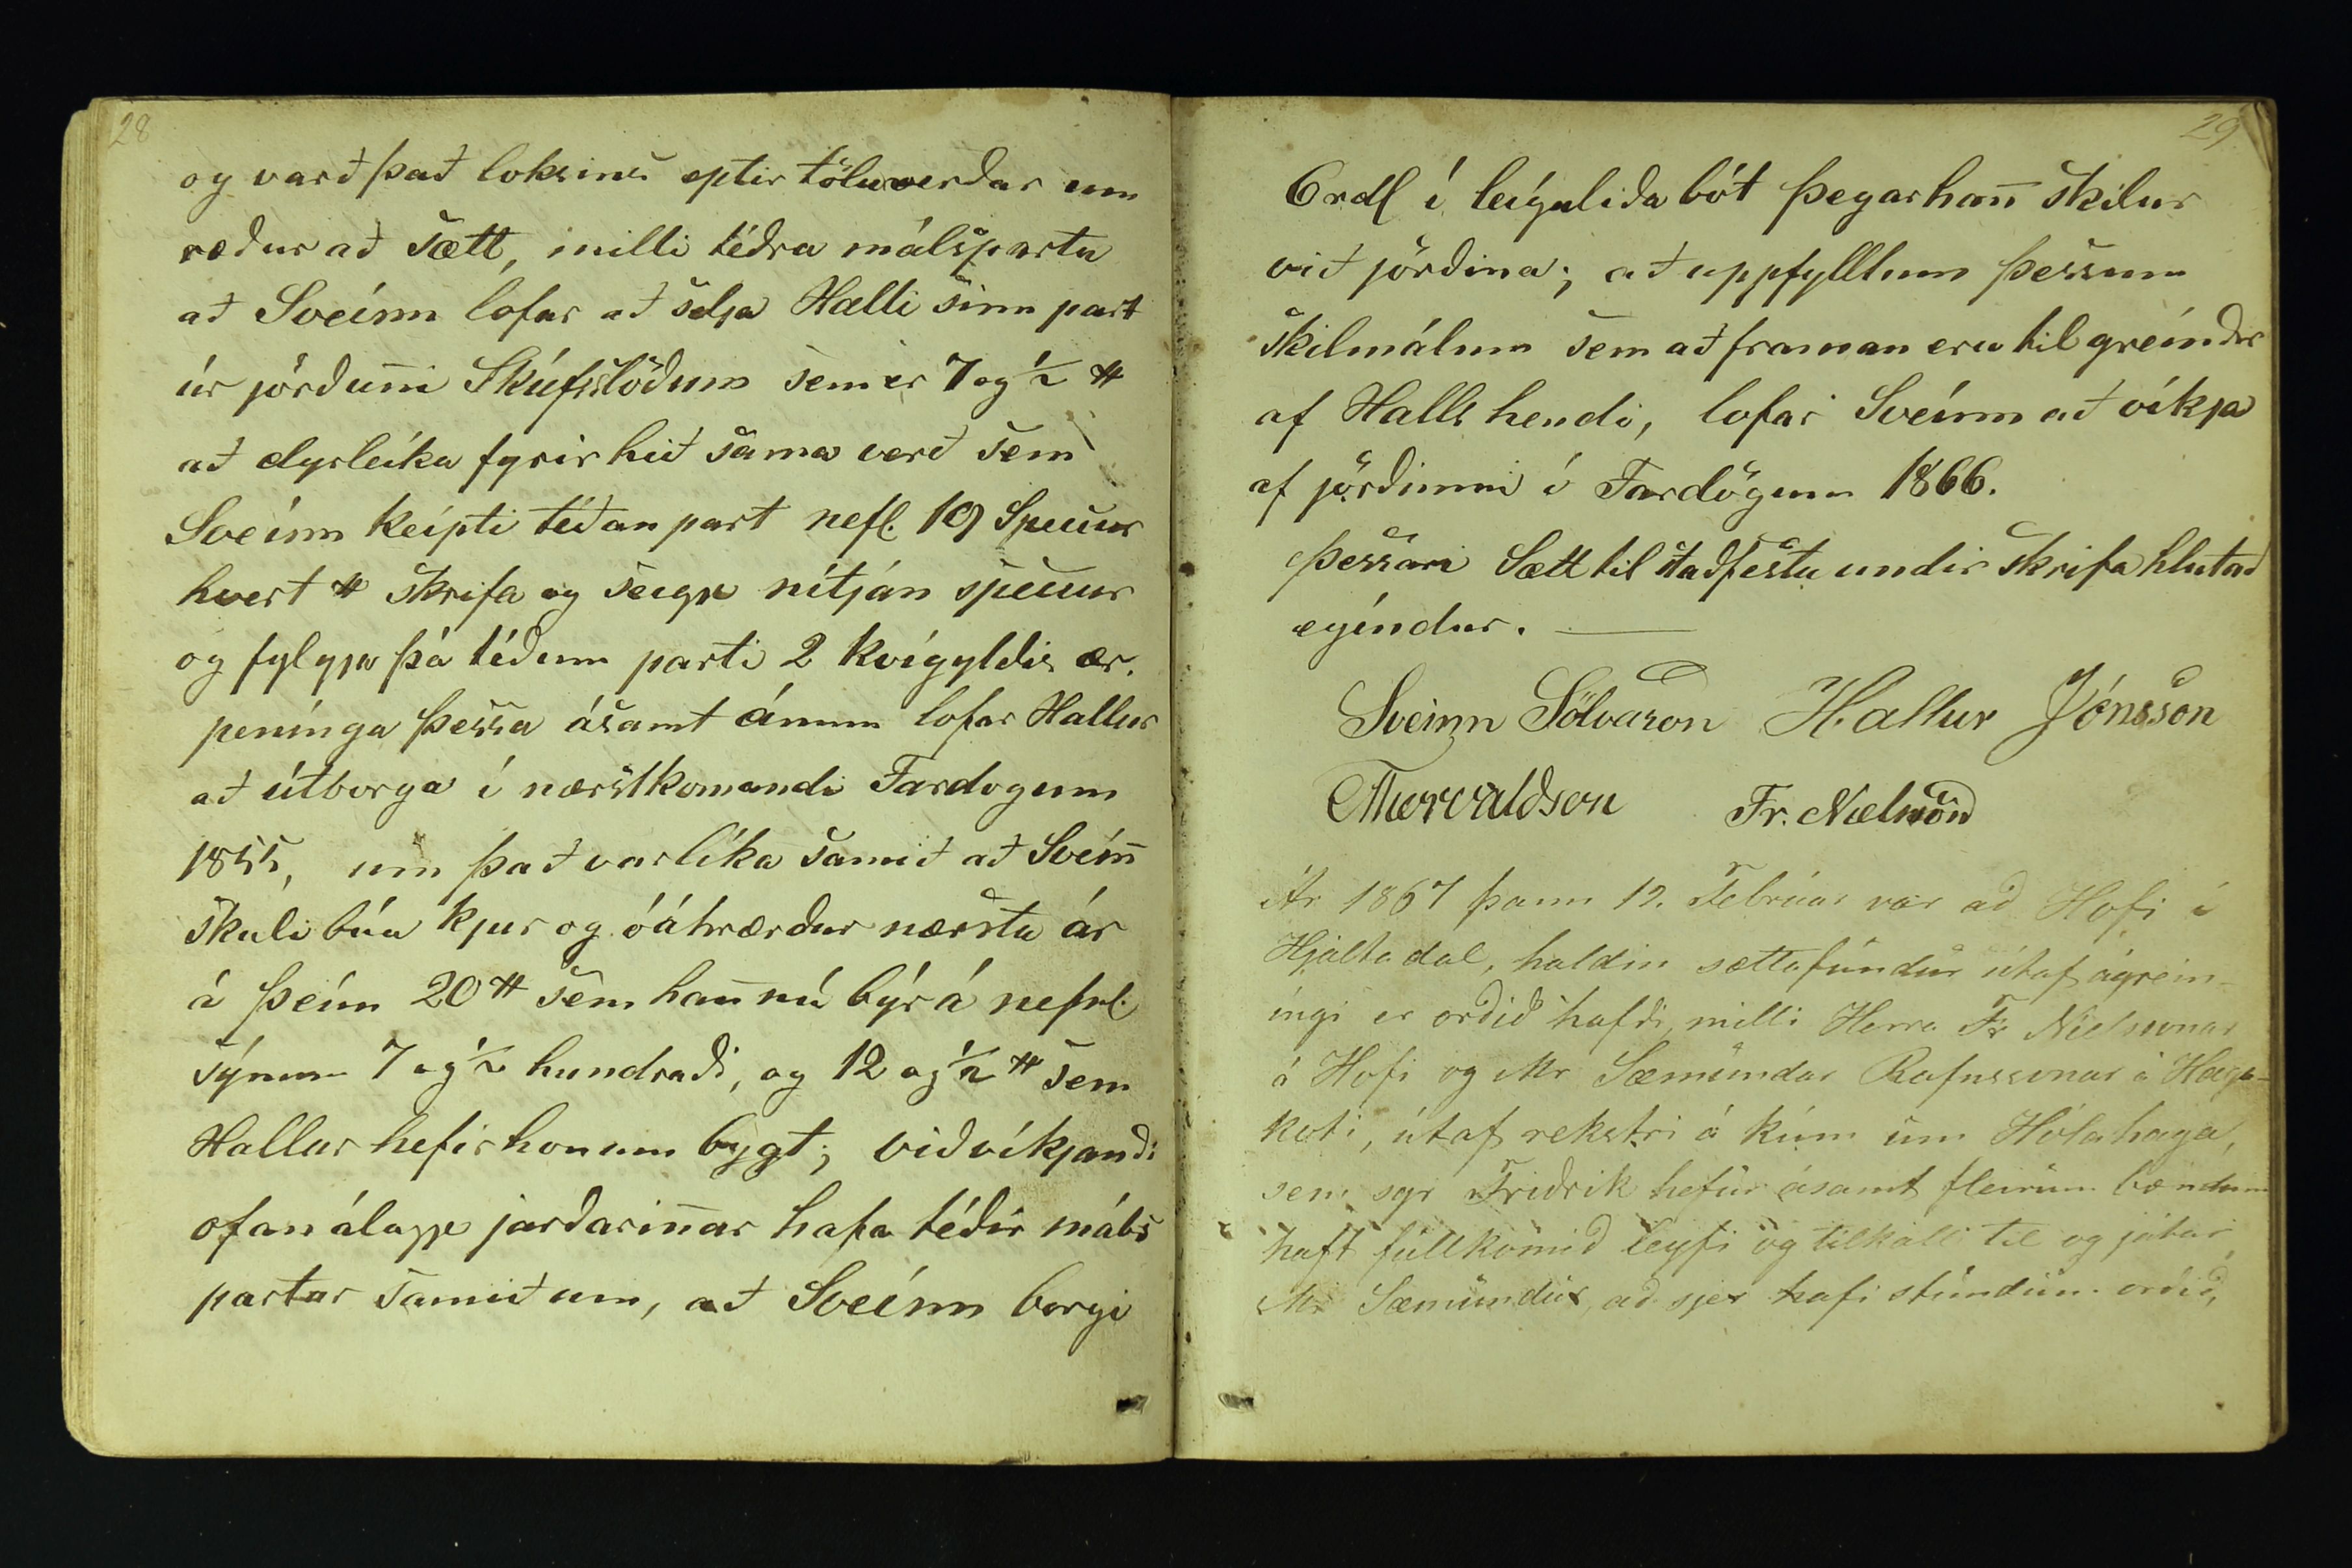 28
og varð það loksins eptir töluverðar um
ræður að sætt, milli téðra málsparta
að Sveínn lofar að selja Halli sinn part
úr jörðuni̅ Skúfsstöðum sem er 7 og ½ #
að dyrleíka fyrir hið sama verð sem
Sveínn keípti téðan part nefl. 19 Speciur
hvert # skrifa og seigja nítján speciur
og fylgja þá téðum parti 2 kvígyldis ær.
penínga þessa ásamt ánum lofar Hallur
að útborga í nærstkomandi Fardogum
1855, um það var líka samið að Sveín̅
skuli búa kjur og óáhrærður næsta ár
á þeím 20 # sem han̅ nú býr á nefnl.
sýnum 7 og ½ hundraði, og 12 og ½ # sem
Hallur hefir honum bygt; viðvíkjandi
ofanálagi jarðarin̅ar hafa téðir máls
partar samið um, að Sveínn borgi
29
6 rdl í leíguliða bót þegar han̅ skilur
við jörðina; að uppfylltum þessum
skilmálum sem að framan eru til greíndir
af Halls hendi, lofar Sveínn að víkja
af jörðinni í Fardögum 1866.
Þessari Sætt til staðfestu undir skrifa hlutað
egíndur. —
Sveinn Sölvason Hallur Jónsson
Thorvaldson Fr. Nielsson
Ár 1867 þann 12. Febrúar var að Hofi í
Hjaltadal, haldin sættafundur útaf ágrein-
íngi er orðið hafði, milli Herra Fr Nielssonar
á Hofi og Mr Sæmundar Rafnssonar á Haga-
koti, útaf rekstri á kúm um Hólahaga,
sem sgr Friðrik hefur ásamt fleirum bændum
haft fullkomið leyfi og tilkall til og játar
Mr Sæmundur, að sjer hafi stundum orðið,